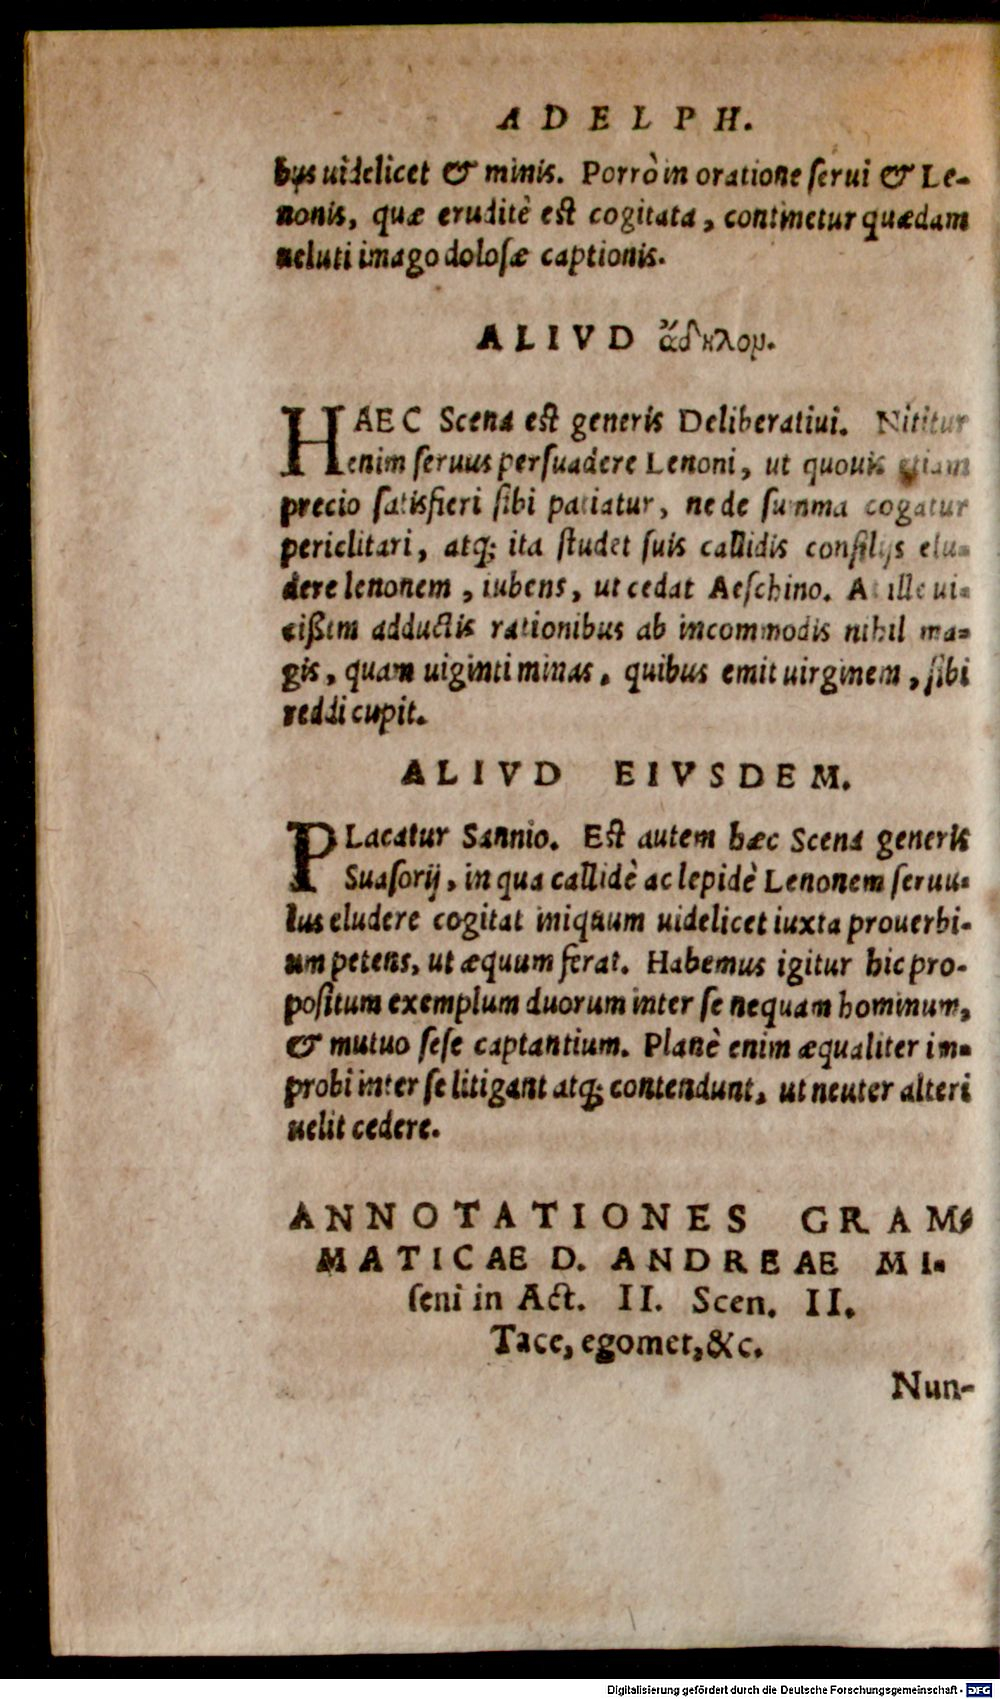 ADELPH.
bus uidelicet & minis. Porrò in oratione ſerui & Le-
nonis, quæ eruditè eſt cogitata, continetur quædam
ueluti imago doloſæ captionis.
ALIVD ἄδηλον.
HAEC Scena eſt generis Deliberatiui. Nititur
enim ſeruus perſuadere Lenoni, ut quouis etiam
precio ſatisfieri ſibi patiatur, ne de ſumma cogatur
periclitari, atq; ita ſtudet ſuis callidis conſilijs elu-
dere lenonem, iubens, ut cedat Aeſchino. At ille ui-
cißim adductis rationibus ab incommodis nihil ma-
gis, quam uiginti minas, quibus emit uirginem, ſibi
reddi cupit.
ALIVD EIVSDEM.
PLacatur Sannio. Eſt autem hæc Scena generis
Suaſorij, in qua callidè ac lepidè Lenonem ſeruu-
lus eludere cogitat iniquum uidelicet iuxta prouerbi-
um petens, ut æquum ferat. Habemus igitur hic pro-
poſitum exemplum duorum inter ſe nequam hominum,
& mutuo ſeſe captantium. Planè enim æqualiter im-
probi inter ſe litigant atq; contendunt, ut neuter alteri
uelit cedere.
ANNOTATIONES GRAM-
MATICAE D. ANDREAE MI-
ſeni in Act. II. Scen. II.
Tace, egomet, &c.
Nun-
Digitalisierung gefördert durch die Deutsche Forschungsgemeinschaft - DFG